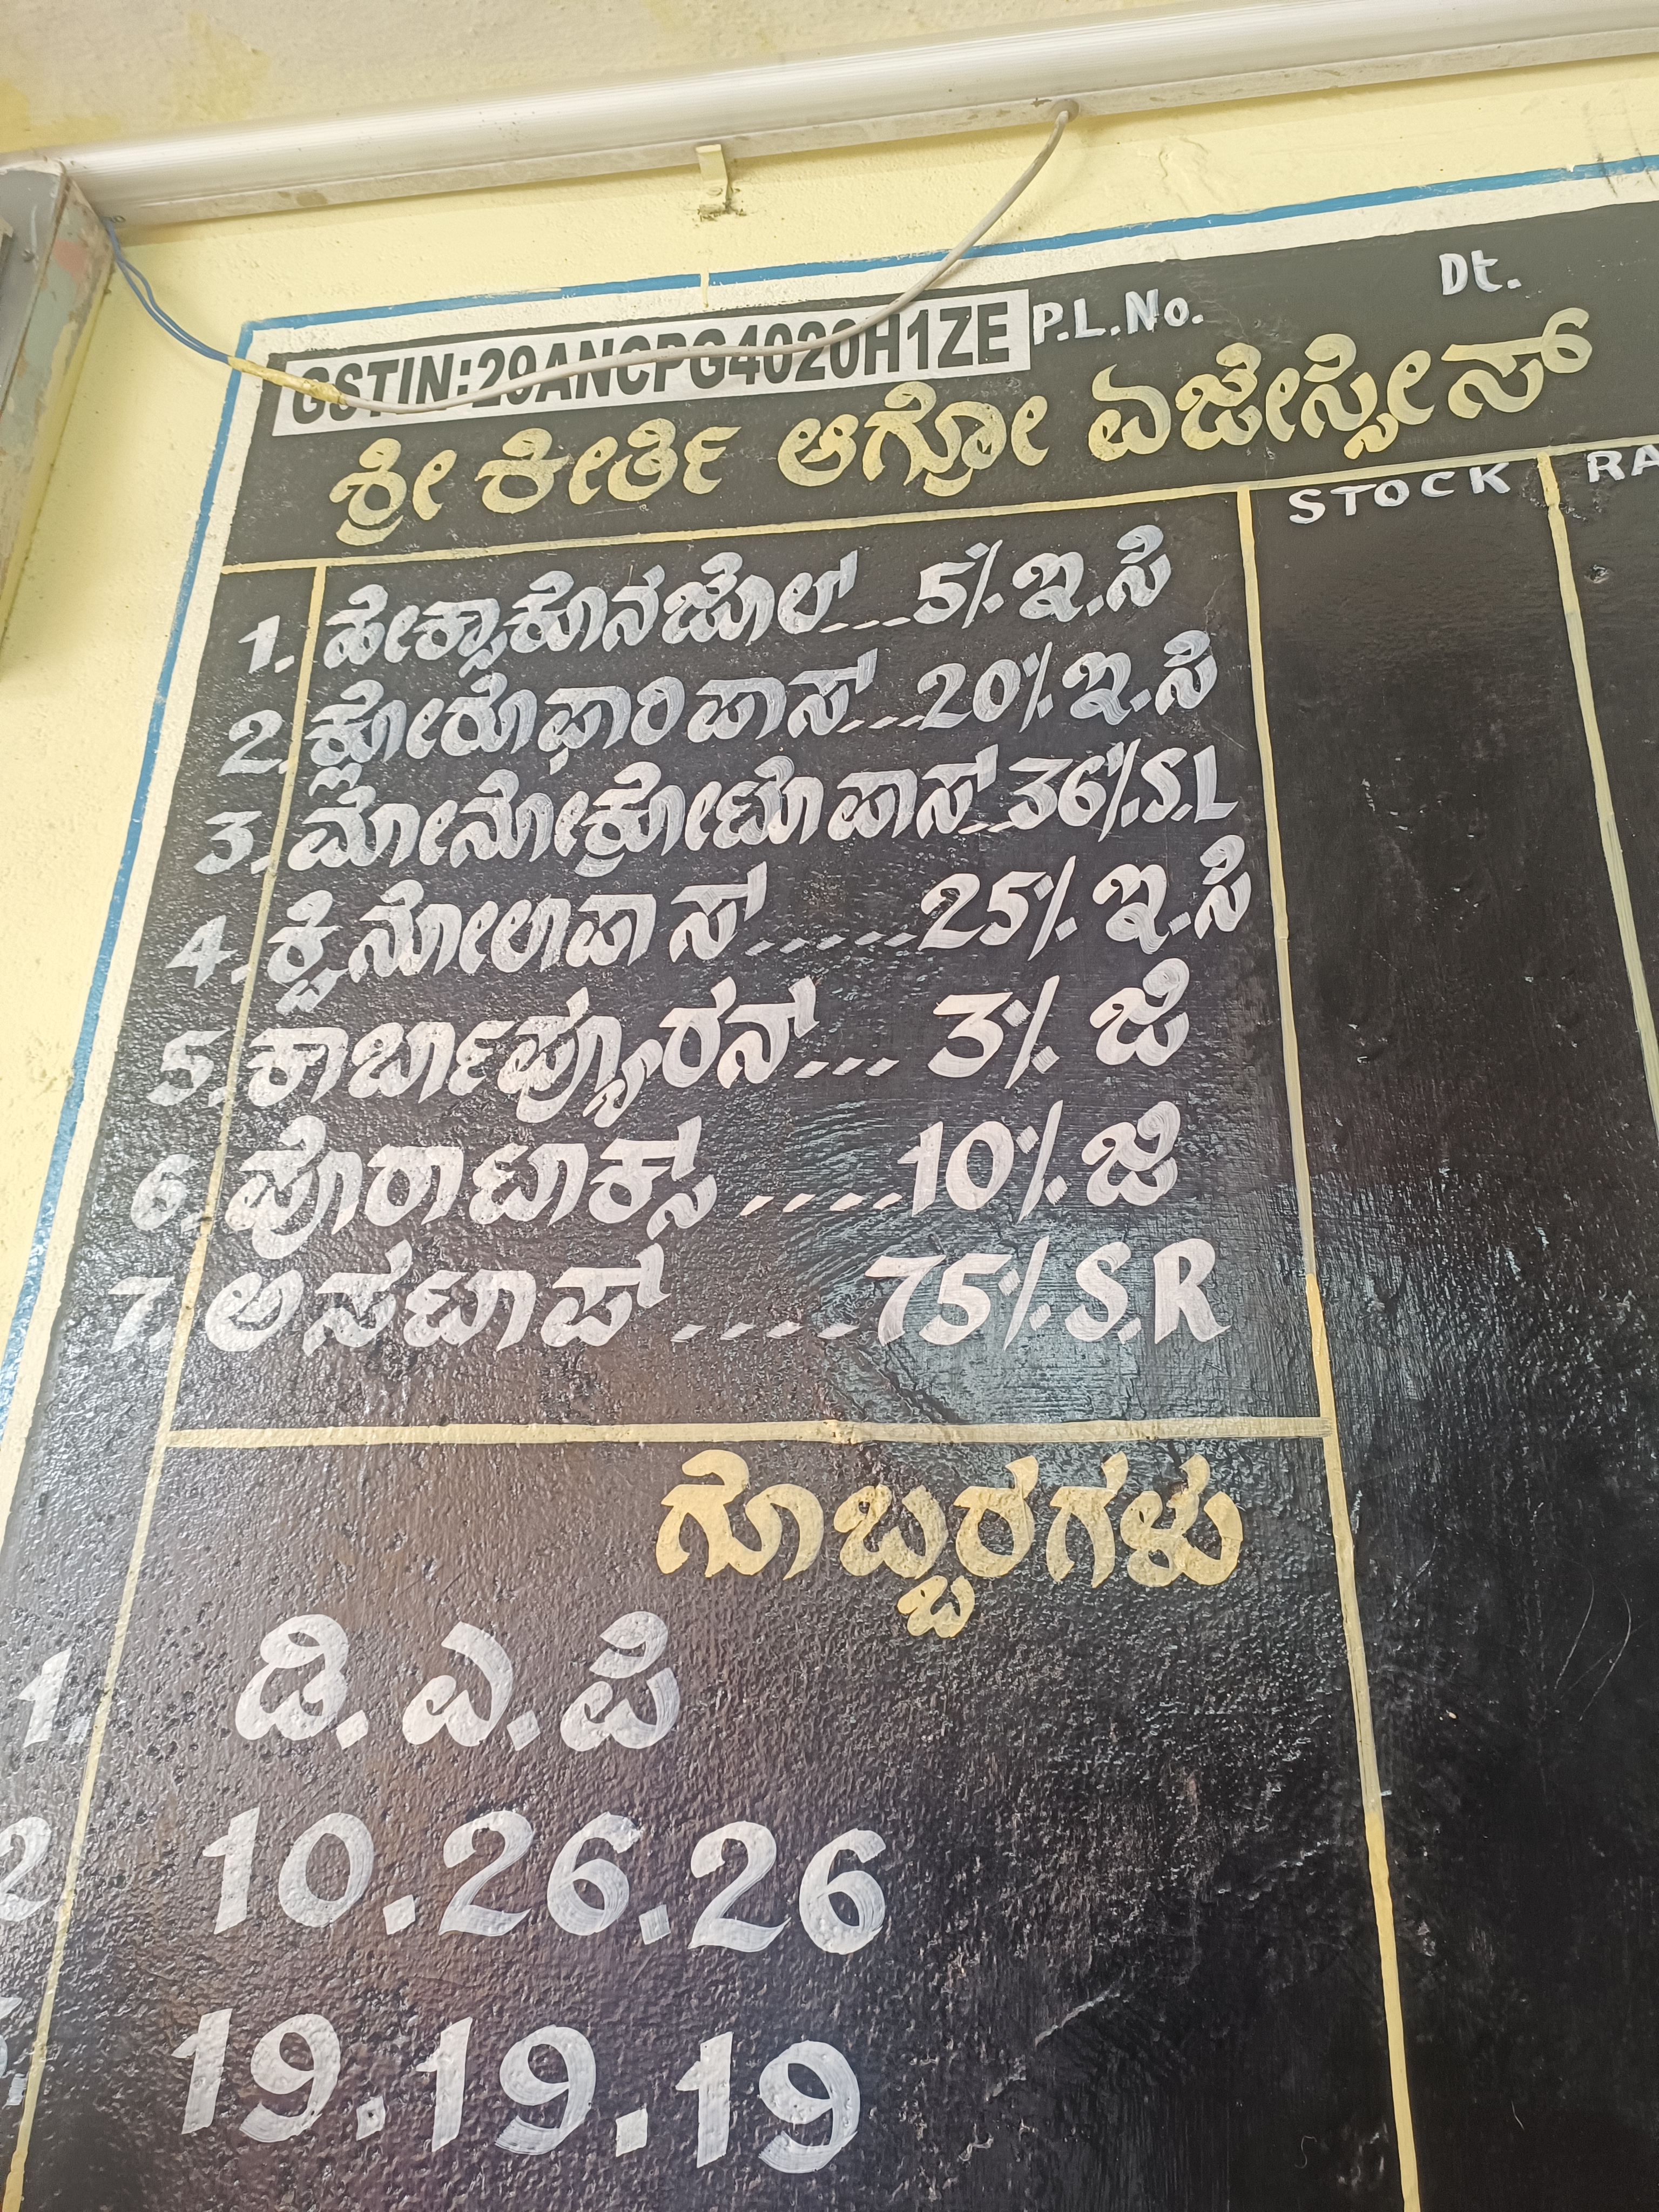 GSTIN:29ANCPG4020H1ZE P.L.No. Dt.
ಶ್ರೀ ಕೀರ್ತಿ ಆಗ್ರೋ ಏಜೇನ್ಸೀಸ್
STOCK RA
1. ಹೇಕ್ಸಾಕೊನಜೊಲ್....5% ಇ.ಸಿ
2. ಕ್ಲೋರೊಫಾರಿಪಾಸ್....20% ಇ.ಸಿ
3. ಮೋನೋಕ್ರೋಟೊಪಾಸ್...36% S.L
4. ಕ್ವಿನೋಲಾಪಾಸ್......25% ಇ.ಸಿ
5. ಕಾರ್ಬಾಪ್ಯೂರನ್.... 3% ಜಿ
6. ಪೊರಾಟಾಕ್ಸ್.....10% ಜಿ
7. ಅಸಟಾಪ್.....75% S.R
ಗೊಬ್ಬರಗಳು
1. ಡಿ.ಎ.ಪಿ
2 10.26.26
19.19.19